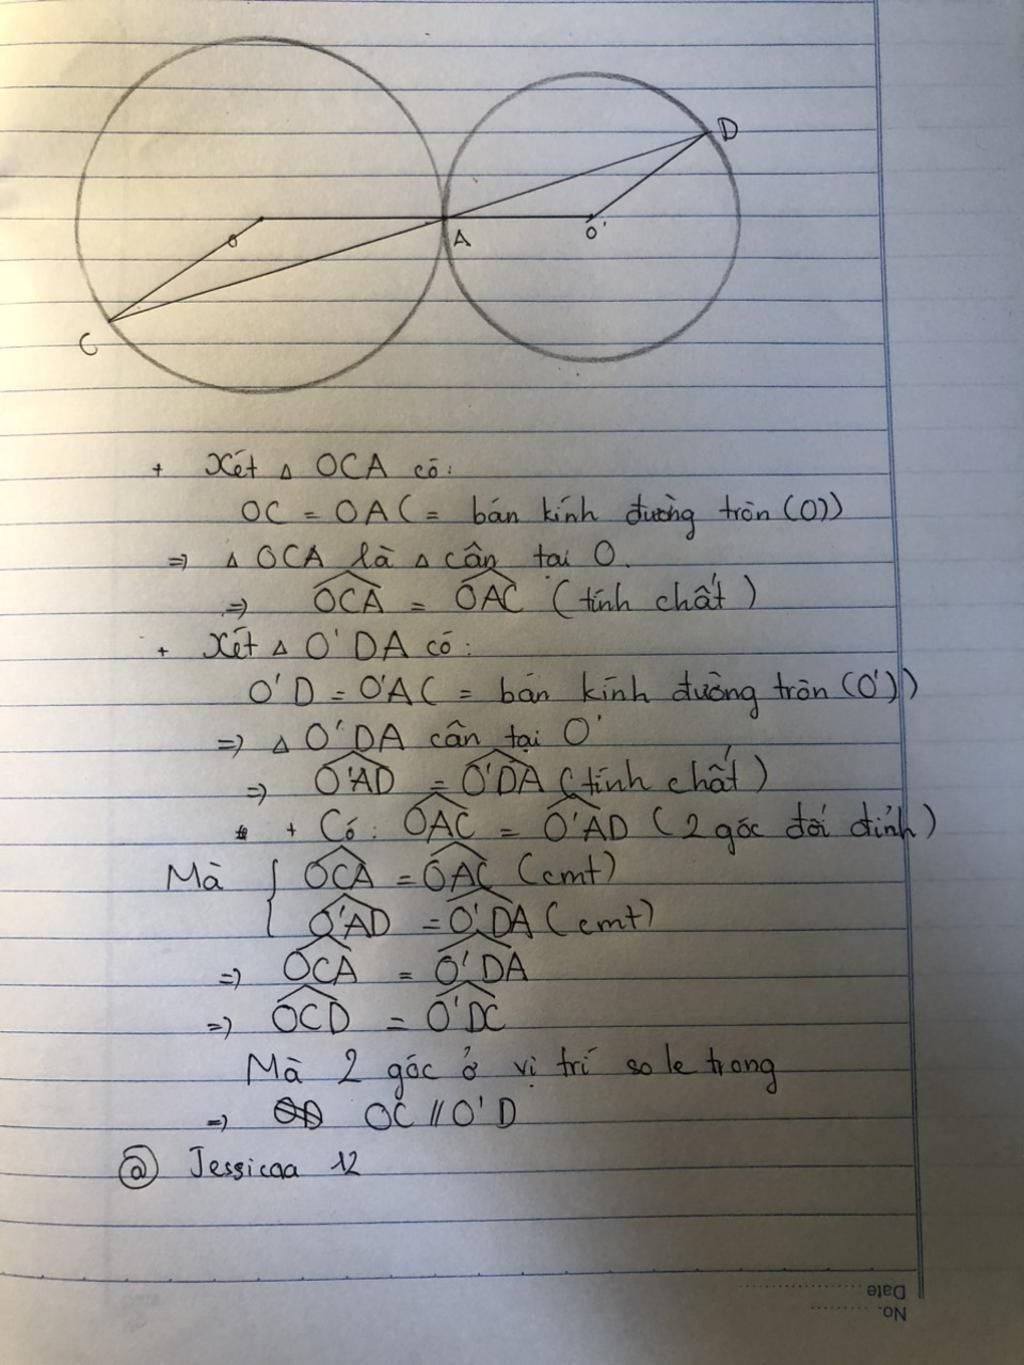 D
O
A
O'
C
+ Xét △ OCA có:
OC = OA (= bán kính đường tròn (O))
=> △ OCA là △ cân tại O.
=> OCA = OAC (tính chất)
+ Xét △ O'DA có:
O'D = O'A (= bán kính đường tròn (O'))
=> △ O'DA cân tại O'
=> O'AD = O'DA (tính chất)
+ Có: OAC = O'AD (2 góc đối đỉnh)
Mà { OCA = OAC (cmt)
O'AD = O'DA (cmt)
=> OCA = O'DA
=> OCD = O'DC
Mà 2 góc ở vị trí so le trong
=> OC // O'D
@ Jessicaa 12
Date
No.